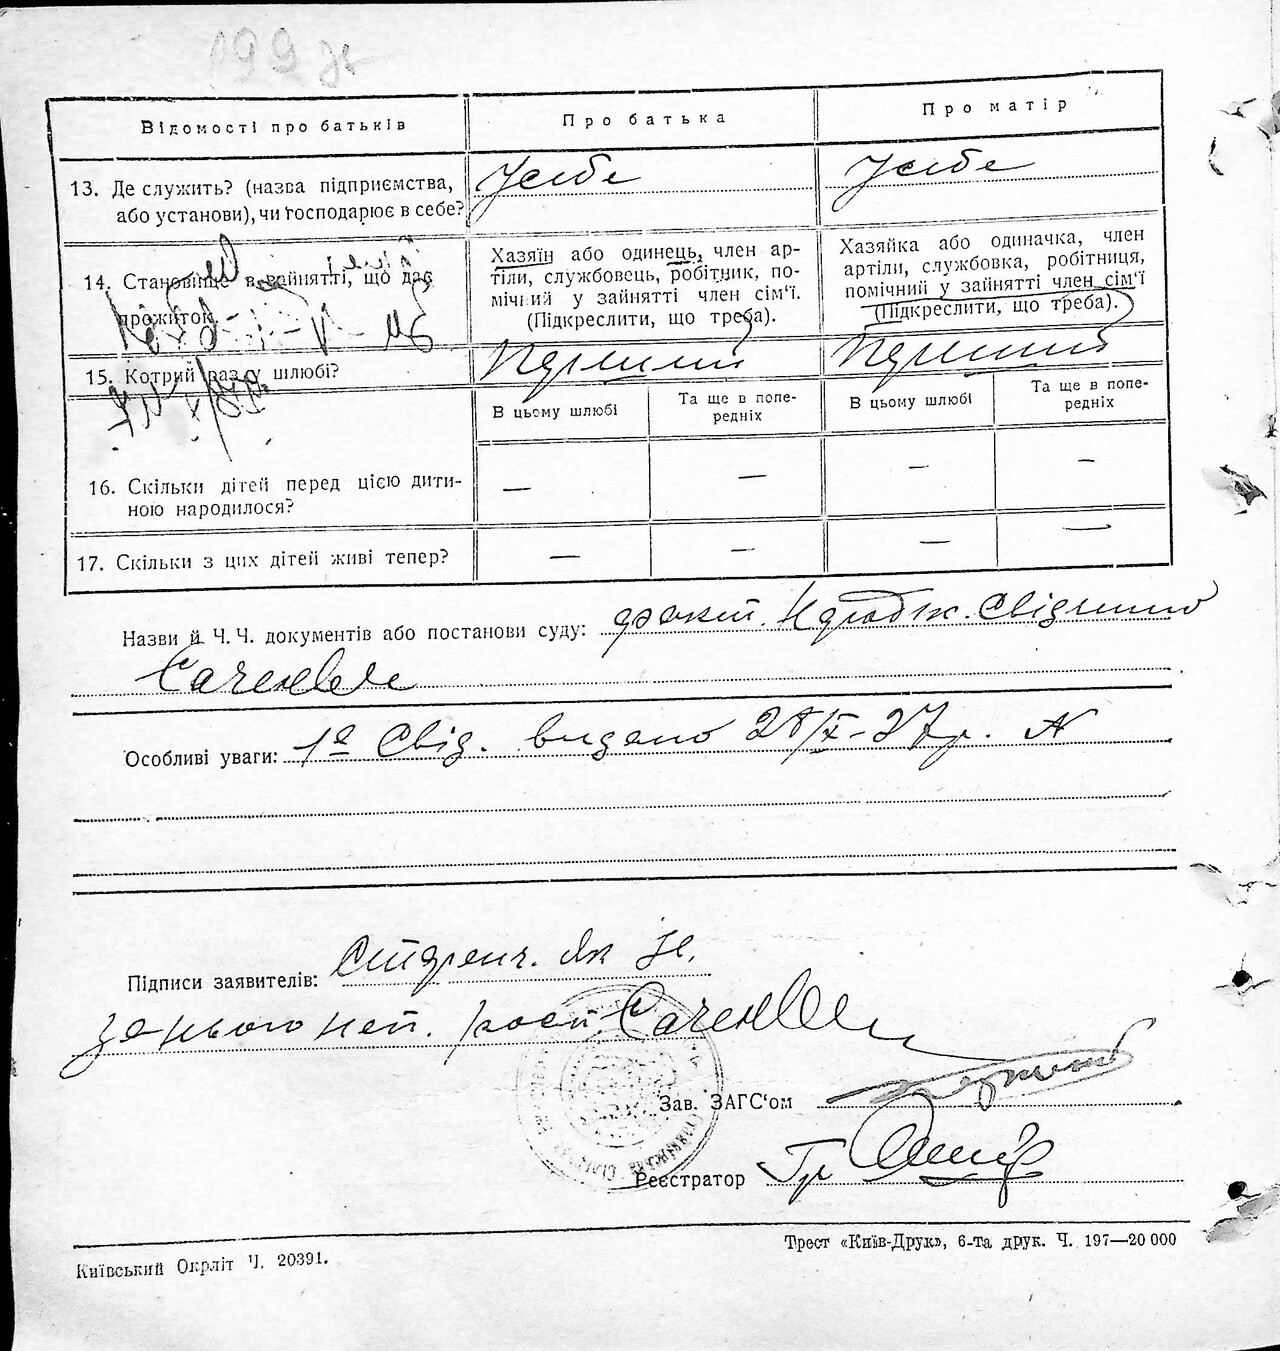 199 зв
Відомості про батьків
Про батька
Про матір
13. Де служить? (назва підприємства, або установи), чи господарює в себе?
У себе
У себе
14. Становище в зайнятті, що дає прожиток.
Хазяїн або одинець, член ар-
тіли, службовець, робітник, по-
мічний у зайнятті член сім'ї.
(Підкреслити, що треба).
Хазяйка або одиначка, член
артіли, службовка, робітниця,
помічний у зайнятті член сім'ї
(Підкреслити, що треба).
15. Котрий раз у шлюбі?
Перший
Перший
В цьому шлюбі
Та ще в попе-
редніх
В цьому шлюбі
Та ще в попе-
редніх
16. Скільки дітей перед цією дити-
ною народилося?
— — — —
17. Скільки з цих дітей живі тепер?
— — — —
Назви й Ч.Ч. документів або постанови суду:
Особливі уваги: 1е Свід. видано 28/ІХ-27р. №
Підписи заявителів: як не
за нього неп. розп.
Зав. ЗАГС'ом
Реєстратор
Київський Окрліт Ч. 20391.
Трест «Київ-Друк», 6-та друк. Ч. 197—20 000